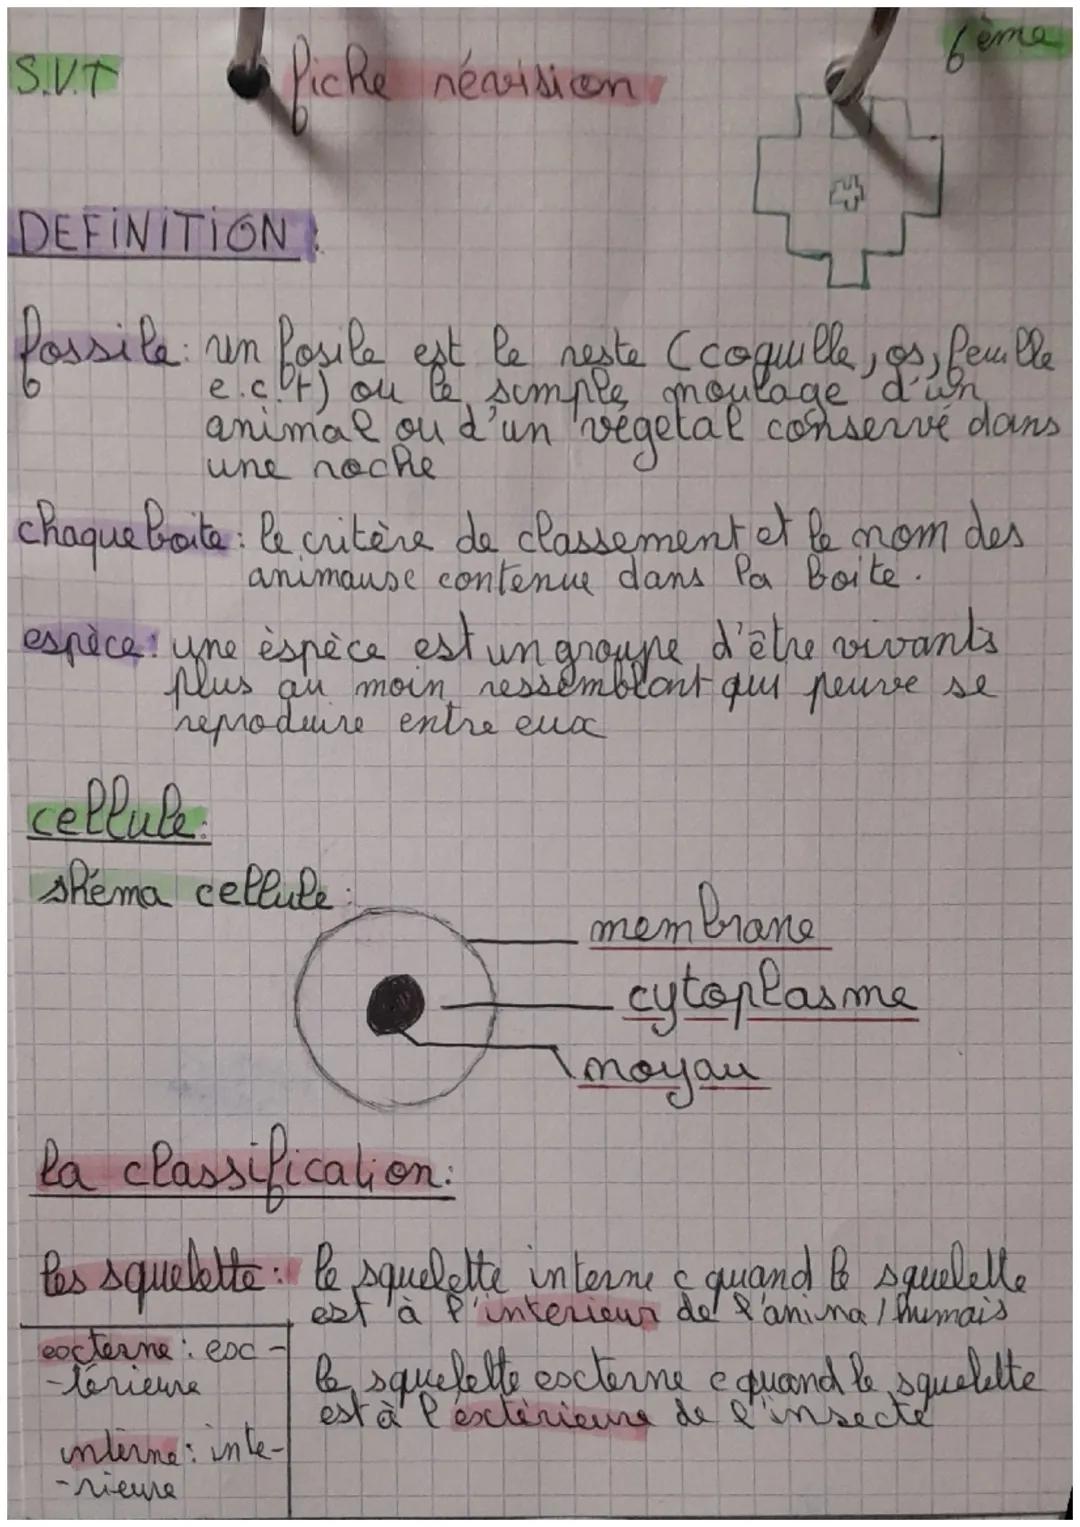 S.V.T fiche révision 6ème
DEFINITION :
fossile: un fosile est le reste (coquille, os, feuille
e.c.t) ou le simple moulage d'un
animal ou d'un végétal conservé dans
une roche
chaque boite: le critère de classement et le nom des
animause contenue dans la boite.
espèce: une èspèce est un groupe d'être vivants
plus au moin ressemblant qui peuve se
reproduire entre eux
cellule:
shéma cellule:
membrane
cytoplasme
noyau
la classification:
les squelette: le squelette interne c quand le squelette
est à l'interieur de l'anima/humais
le squelette externe c quand le squelette
est à l'extérieure de l'insecte
externe: ex-
-térieure
interne: inte-
-rieure